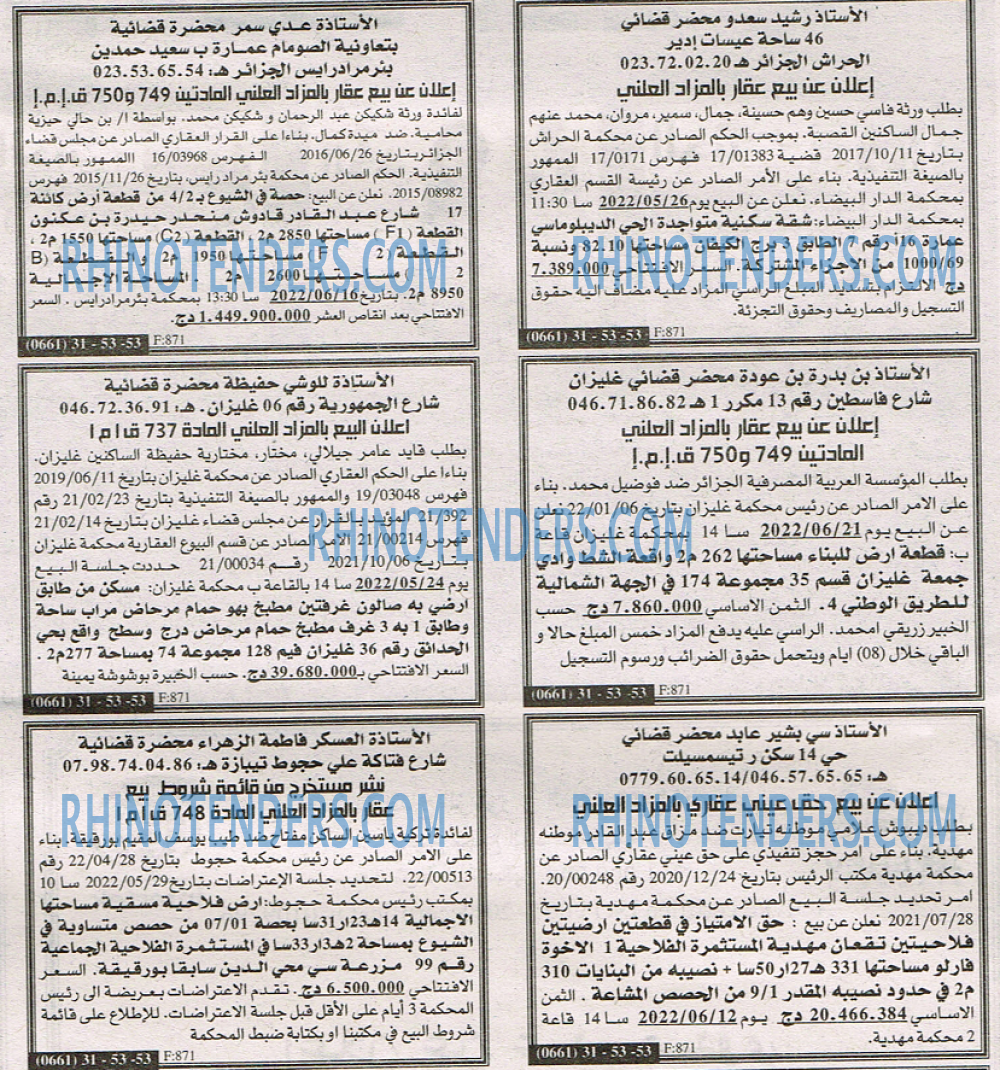 الأستاذ رشيد سعدو محضر قضائي
46 ساحة عيسات إدير
الحراش الجزائر هـ 023.72.02.20
إعلان عن بيع عقار بالمزاد العلني
بطلب ورثة فاسي حسين وهم حسينة، جمال، سمير، مروان، محمد عنهم
جمال الساكنين القصبة. بموجب الحكم الصادر عن محكمة الحراش
بتاريخ 2017/10/11 قضية 17/01383 فهرس 17/0171 الممهور
بالصيغة التنفيذية. بناء على الأمر الصادر عن رئيسة القسم العقاري
بمحكمة الدار البيضاء. نعلن عن البيع يوم 2022/05/26 سا 11:30
بمحكمة الدار البيضاء: شقة سكنية متواجدة الحي الديبلوماسي
عمارة 16أ رقم 7 الطابق 3 برج الكيفان مساحتها 82.10 ونسبة
1000/69 من الأجزاء المشتركة. السعر الافتتاحي 7.389.000
دج الالتزام بتسديد المبلغ الراسي المزاد عليه مضاف اليه حقوق
التسجيل والمصاريف وحقوق التجزئة.
(0661) 31 - 53 -53 F:871
الأستاذة عدي سمر محضرة قضائية
بتعاونية الصومام عمارة ب سعيد حمدين
بئرمرادرايس الجزائر هـ: 023.53.65.54
إعلان عن بيع عقار بالمزاد العلني المادتين 749 و750 ق.إ.م.إ
لفائدة ورثة شكيكن عبد الرحمان و شكيكن محمد. بواسطة ا/ بن حالي حيزية
محامية. ضد ميدة كمال. بناءا على القرار العقاري الصادر عن مجلس قضاء
الجزائر بتاريخ 2016/06/26 الفهرس 16/03968 االممهور بالصيغة
التنفيذية. الحكم الصادر عن محكمة بئر مراد رايس، بتاريخ 2015/11/26 فهرس
2015/08982. نعلن عن البيع: حصة في الشيوع بـ 4/2 من قطعة أرض كائنة
17 شارع عبد القادر قادوش منحدر حيدرة بن عكنون
القطعة (F1) مساحتها 2850 م2 ، القطعة (C2) مساحتها 1550 م2 ،
القطعة (F 2) مساحتها 1950 م2 والقطعة (B
2 ) مساحتها 2600 م2 المساحة الإجمالية
8950 م2. بتاريخ 2022/06/16 سا 13:30 بمحكمة بئرمرادرايس . السعر
الافتتاحي بعد انقاص العشر 1.449.900.000 دج.
(0661) 31 - 53 -53 F:871
الأستاذ بن بدرة بن عودة محضر قضائي غليزان
شارع فلسطين رقم 13 مكرر 1 هـ 046.71.86.82
إعلان عن بيع عقار بالمزاد العلني
المادتين 749 و750 ق.إ.م.إ
بطلب المؤسسة العربية المصرفية الجزائر ضد فوضيل محمد. بناء
على الامر الصادر عن رئيس محكمة غليزان بتاريخ 22/01/06 نعلن
عن البيع يوم 2022/06/21 سا 14 بمحكمة غليزان قاعة
ب: قطعة ارض للبناء مساحتها 262 م2 واقعة الشط وادي
جمعة غليزان قسم 35 مجموعة 174 في الجهة الشمالية
للطريق الوطني 4. الثمن الاساسي 7.860.000 دج حسب
الخبير زريقي امحمد. الراسي عليه يدفع المزاد خمس المبلغ حالا و
الباقي خلال (08) ايام ويتحمل حقوق الضرائب ورسوم التسجيل
(0661) 31 - 53 -53 F:871
الأستاذة للوشي حفيظة محضرة قضائية
شارع الجمهورية رقم 06 غليزان . هـ: 046.72.36.91
اعلان البيع بالمزاد العلني المادة 737 ق ا م ا
بطلب قايد عامر جيلالي، مختار، مختارية حفيظة الساكنين غليزان.
بناءا على الحكم العقاري الصادر عن محكمة غليزان بتاريخ 2019/06/11
فهرس 19/03048 والممهور بالصيغة التنفيذية بتاريخ 21/02/23 رقم
21/392 المؤيد بالقرار عن مجلس قضاء غليزان بتاريخ 21/02/14
فهرس 21/00214 الامر الصادر عن قسم البيوع العقارية محكمة غليزان
بتاريخ 2021/10/06 رقم 21/00034 حددت جلسة البيع
يوم 2022/05/24 سا 14 بالقاعة ب محكمة غليزان: مسكن من طابق
ارضي به صالون غرفتين مطبخ بهو حمام مرحاض مراب ساحة
وطابق 1 به 3 غرف مطبخ حمام مرحاض درج وسطح واقع بحي
الحدائق رقم 36 غليزان قيم 128 مجموعة 74 بمساحة 277م2 .
السعر الافتتاحي بـ 39.680.000 دج. حسب الخبيرة بوشوشة يمينة
(0661) 31 - 53 -53 F:871
الأستاذ سي بشير عابد محضر قضائي
حي 14 سكن ر تيسمسيلت
هـ: 0779.60.65.14/046.57.65.65
اعلان عن بيع حق عيني عقاري بالمزاد العلني
بطلب دبيوش علامي موطنه تيارت ضد مزاق عبد القادر موطنه
مهدية. بناء على امر حجز تنفيذي على حق عيني عقاري الصادر عن
محكمة مهدية مكتب الرئيس بتاريخ 2020/12/24 رقم 20/00248.
امر تحديد جلسة البيع الصادر عن محكمة مهدية بتاريخ
2021/07/28 نعلن عن بيع : حق الامتياز في قطعتين ارضيتين
فلاحيتين تقعان مهدية المستثمرة الفلاحية 1 الاخوة
فارلو مساحتها 331 هـ27ار50سا + نصيبه من البنايات 310
م2 في حدود نصيبه المقدر 9/1 من الحصص المشاعة . الثمن
الاساسي 20.466.384 دج يوم 2022/06/12 سا 14 قاعة
2 محكمة مهدية.
(0661) 31 - 53 -53 F:871
الأستاذة العسكر فاطمة الزهراء محضرة قضائية
شارع فتاكة علي حجوط تيبازة هـ: 07.98.74.04.86
نشر مستخرج من قائمة شروط بيع
عقار بالمزاد العلني المادة 748 ق ا م ا
لفائدة تركية ياسين الساكن مفتاح ضد طيب يوسف المقيم بورقيقة. بناء
على الامر الصادر عن رئيس محكمة حجوط بتاريخ 22/04/28 رقم
22/00513. لتحديد جلسة الإعتراضات بتاريخ 2022/05/29 سا 10
بمكتب رئيس محكمة حجوط: ارض فلاحية مسقية مساحتها
الاجمالية 14هـ23ار31سا بحصة 07/01 من حصص متساوية في
الشيوع بمساحة 2هـ3ار33سا في المستثمرة الفلاحية الجماعية
رقم 99 مزرعة سي محي الدين سابقا بورقيقة. السعر
الافتتاحي 6.500.000 دج. تقدم الاعتراضات بعريضة الى رئيس
المحكمة 3 أيام على الأقل قبل جلسة الاعتراضات. للإطلاع على قائمة
شروط البيع في مكتبنا او بكتابة ضبط المحكمة
(0661) 31 - 53 -53 F:871
RHINOTENDERS.COM
RHINOTENDERS.COM
RHINOTENDERS.COM
RHINOTENDERS.COM
RHINOTENDERS.COM